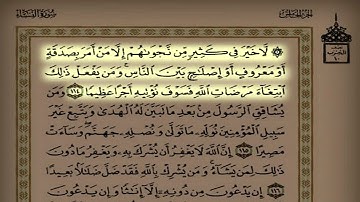 سورة النساء
الجزء الخامس
۞ لَّا خَيْرَ فِي كَثِيرٍ مِّن نَّجْوَىٰهُمْ إِلَّا مَنْ أَمَرَ بِصَدَقَةٍ
أَوْ مَعْرُوفٍ أَوْ إِصْلَٰحٍۭ بَيْنَ النَّاسِ ۚ وَمَن يَفْعَلْ ذَٰلِكَ
ابْتِغَاءَ مَرْضَاتِ اللَّهِ فَسَوْفَ نُؤْتِيهِ أَجْرًا عَظِيمًا ١١٤ وَمَن
يُشَاقِقِ الرَّسُولَ مِنۢ بَعْدِ مَا تَبَيَّنَ لَهُ الْهُدَىٰ وَيَتَّبِعْ غَيْرَ
سَبِيلِ الْمُؤْمِنِينَ نُوَلِّهِ مَا تَوَلَّىٰ وَنُصْلِهِ جَهَنَّمَ ۖ وَسَاءَتْ
مَصِيرًا ١١٥ إِنَّ اللَّهَ لَا يَغْفِرُ أَن يُشْرَكَ بِهِ وَيَغْفِرُ مَا دُونَ
ذَٰلِكَ لِمَن يَشَاءُ ۚ وَمَن يُشْرِكْ بِاللَّهِ فَقَدْ ضَلَّ ضَلَٰلًۢا بَعِيدًا
١١٦ إِن يَدْعُونَ مِن دُونِهِ إِلَّا إِنَٰثًا وَإِن يَدْعُونَ